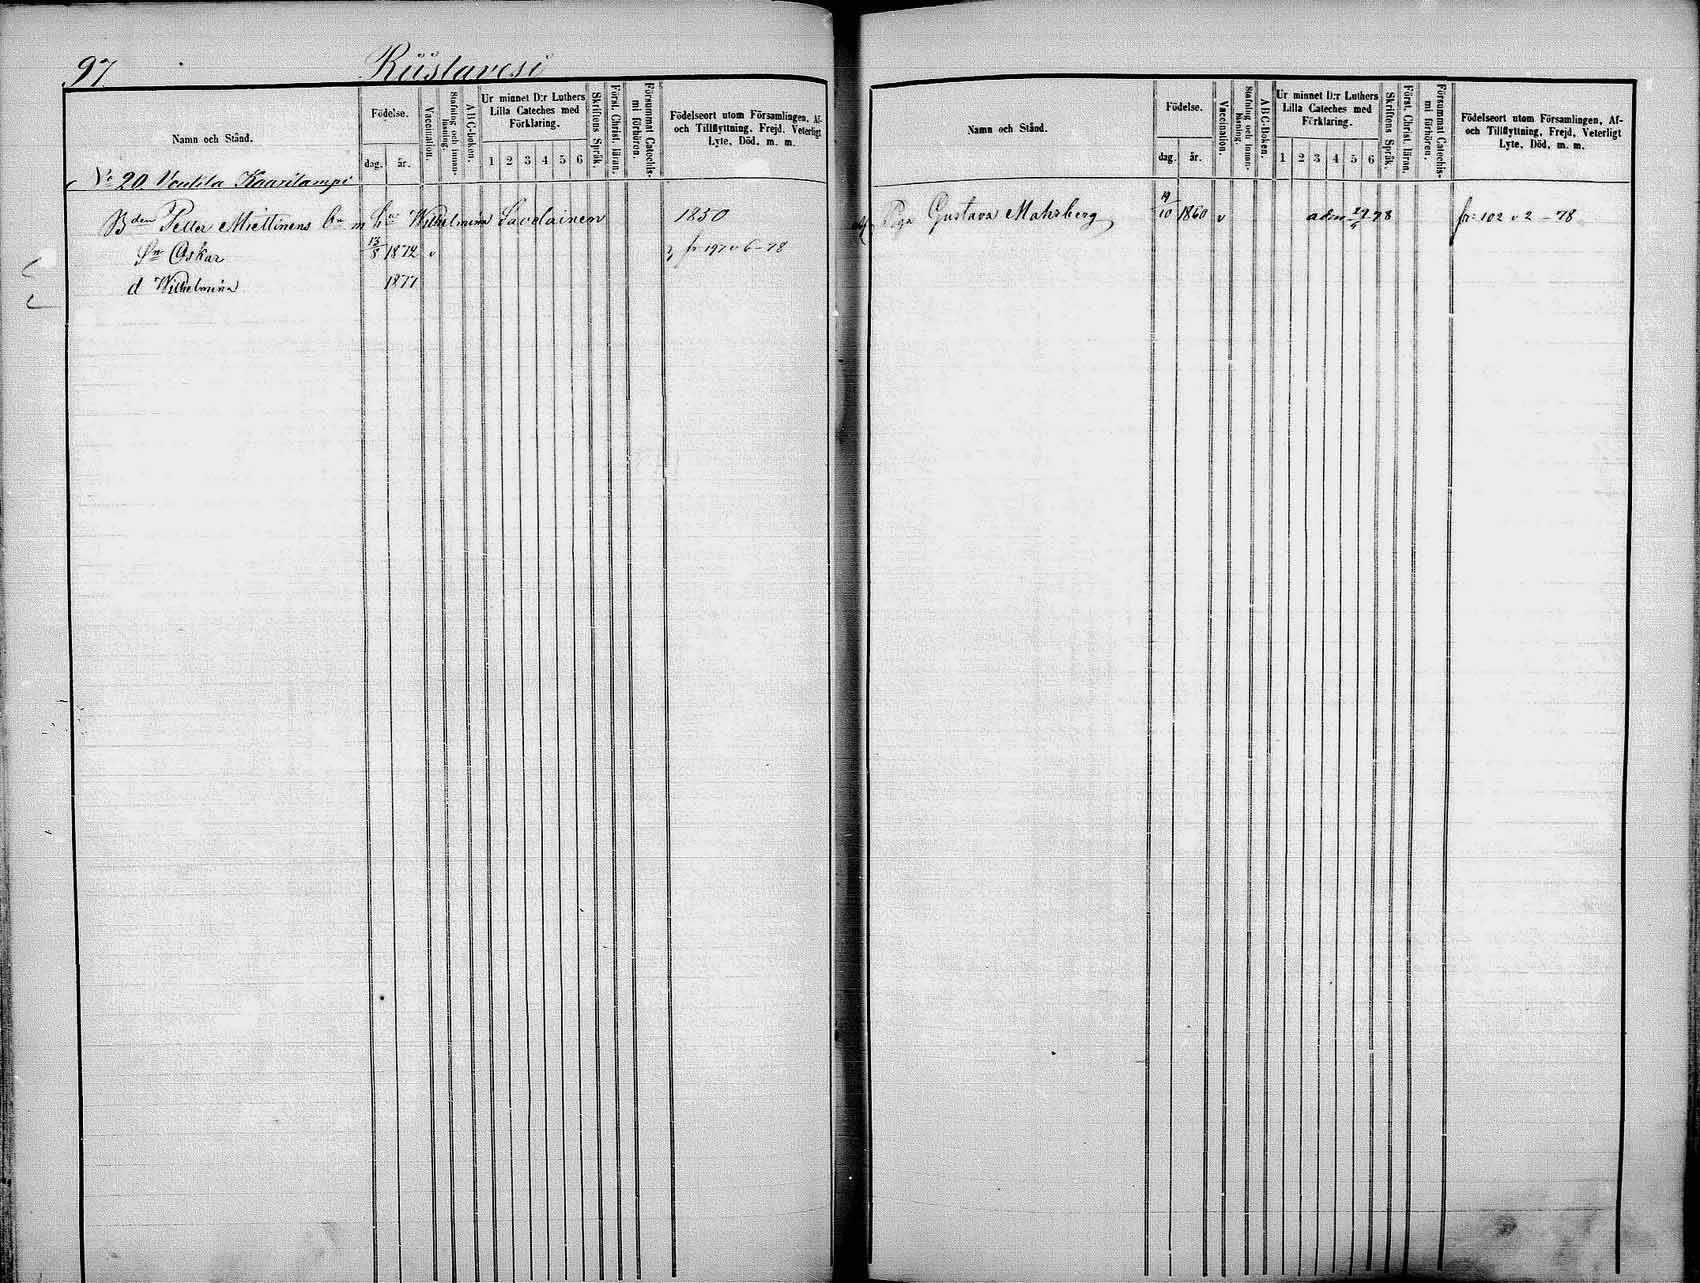 97.
Riistavesi
Namn och Stånd.
Födelse.
dag.
år.
Vaccination.
Stafning och innan-läsning.
ABC-boken.
Ur minnet D:r Luthers
Lilla Cateches med
Förklaring.
1 2 3 4 5 6
Skriftens Språk.
Först. Christ. läran.
Försummat Catechis-
mi förhören.
Födelseort utom Församlingen, Af-
och Tillflyttning, Frejd, Veterligt
Lyte, Död, m. m.
No 20 Ventila Kaarilampi
Bden Petter Miettinens Wilhelmina Savolainen 1850
Sn Oskar 13/8 1872 v fr 197 v 6-78
d Wilhelmina 1877
Namn och Stånd.
Födelse.
dag.
år.
Vaccination.
Stafning och innan-läsning.
ABC-Boken.
Ur minnet D:r Luthers
Lilla Cateches med
Förklaring.
1 2 3 4 5 6
Skriftens Språk.
Först. Christ. läran.
Försummat Catechis-
mi förhören.
Födelseort utom Församlingen, Af-
och Tillflyttning, Frejd, Veterligt
Lyte, Död, m. m.
Pga Gustava Mahrberg 19/10 1860 v adm 78 fr: 102 v 2-78